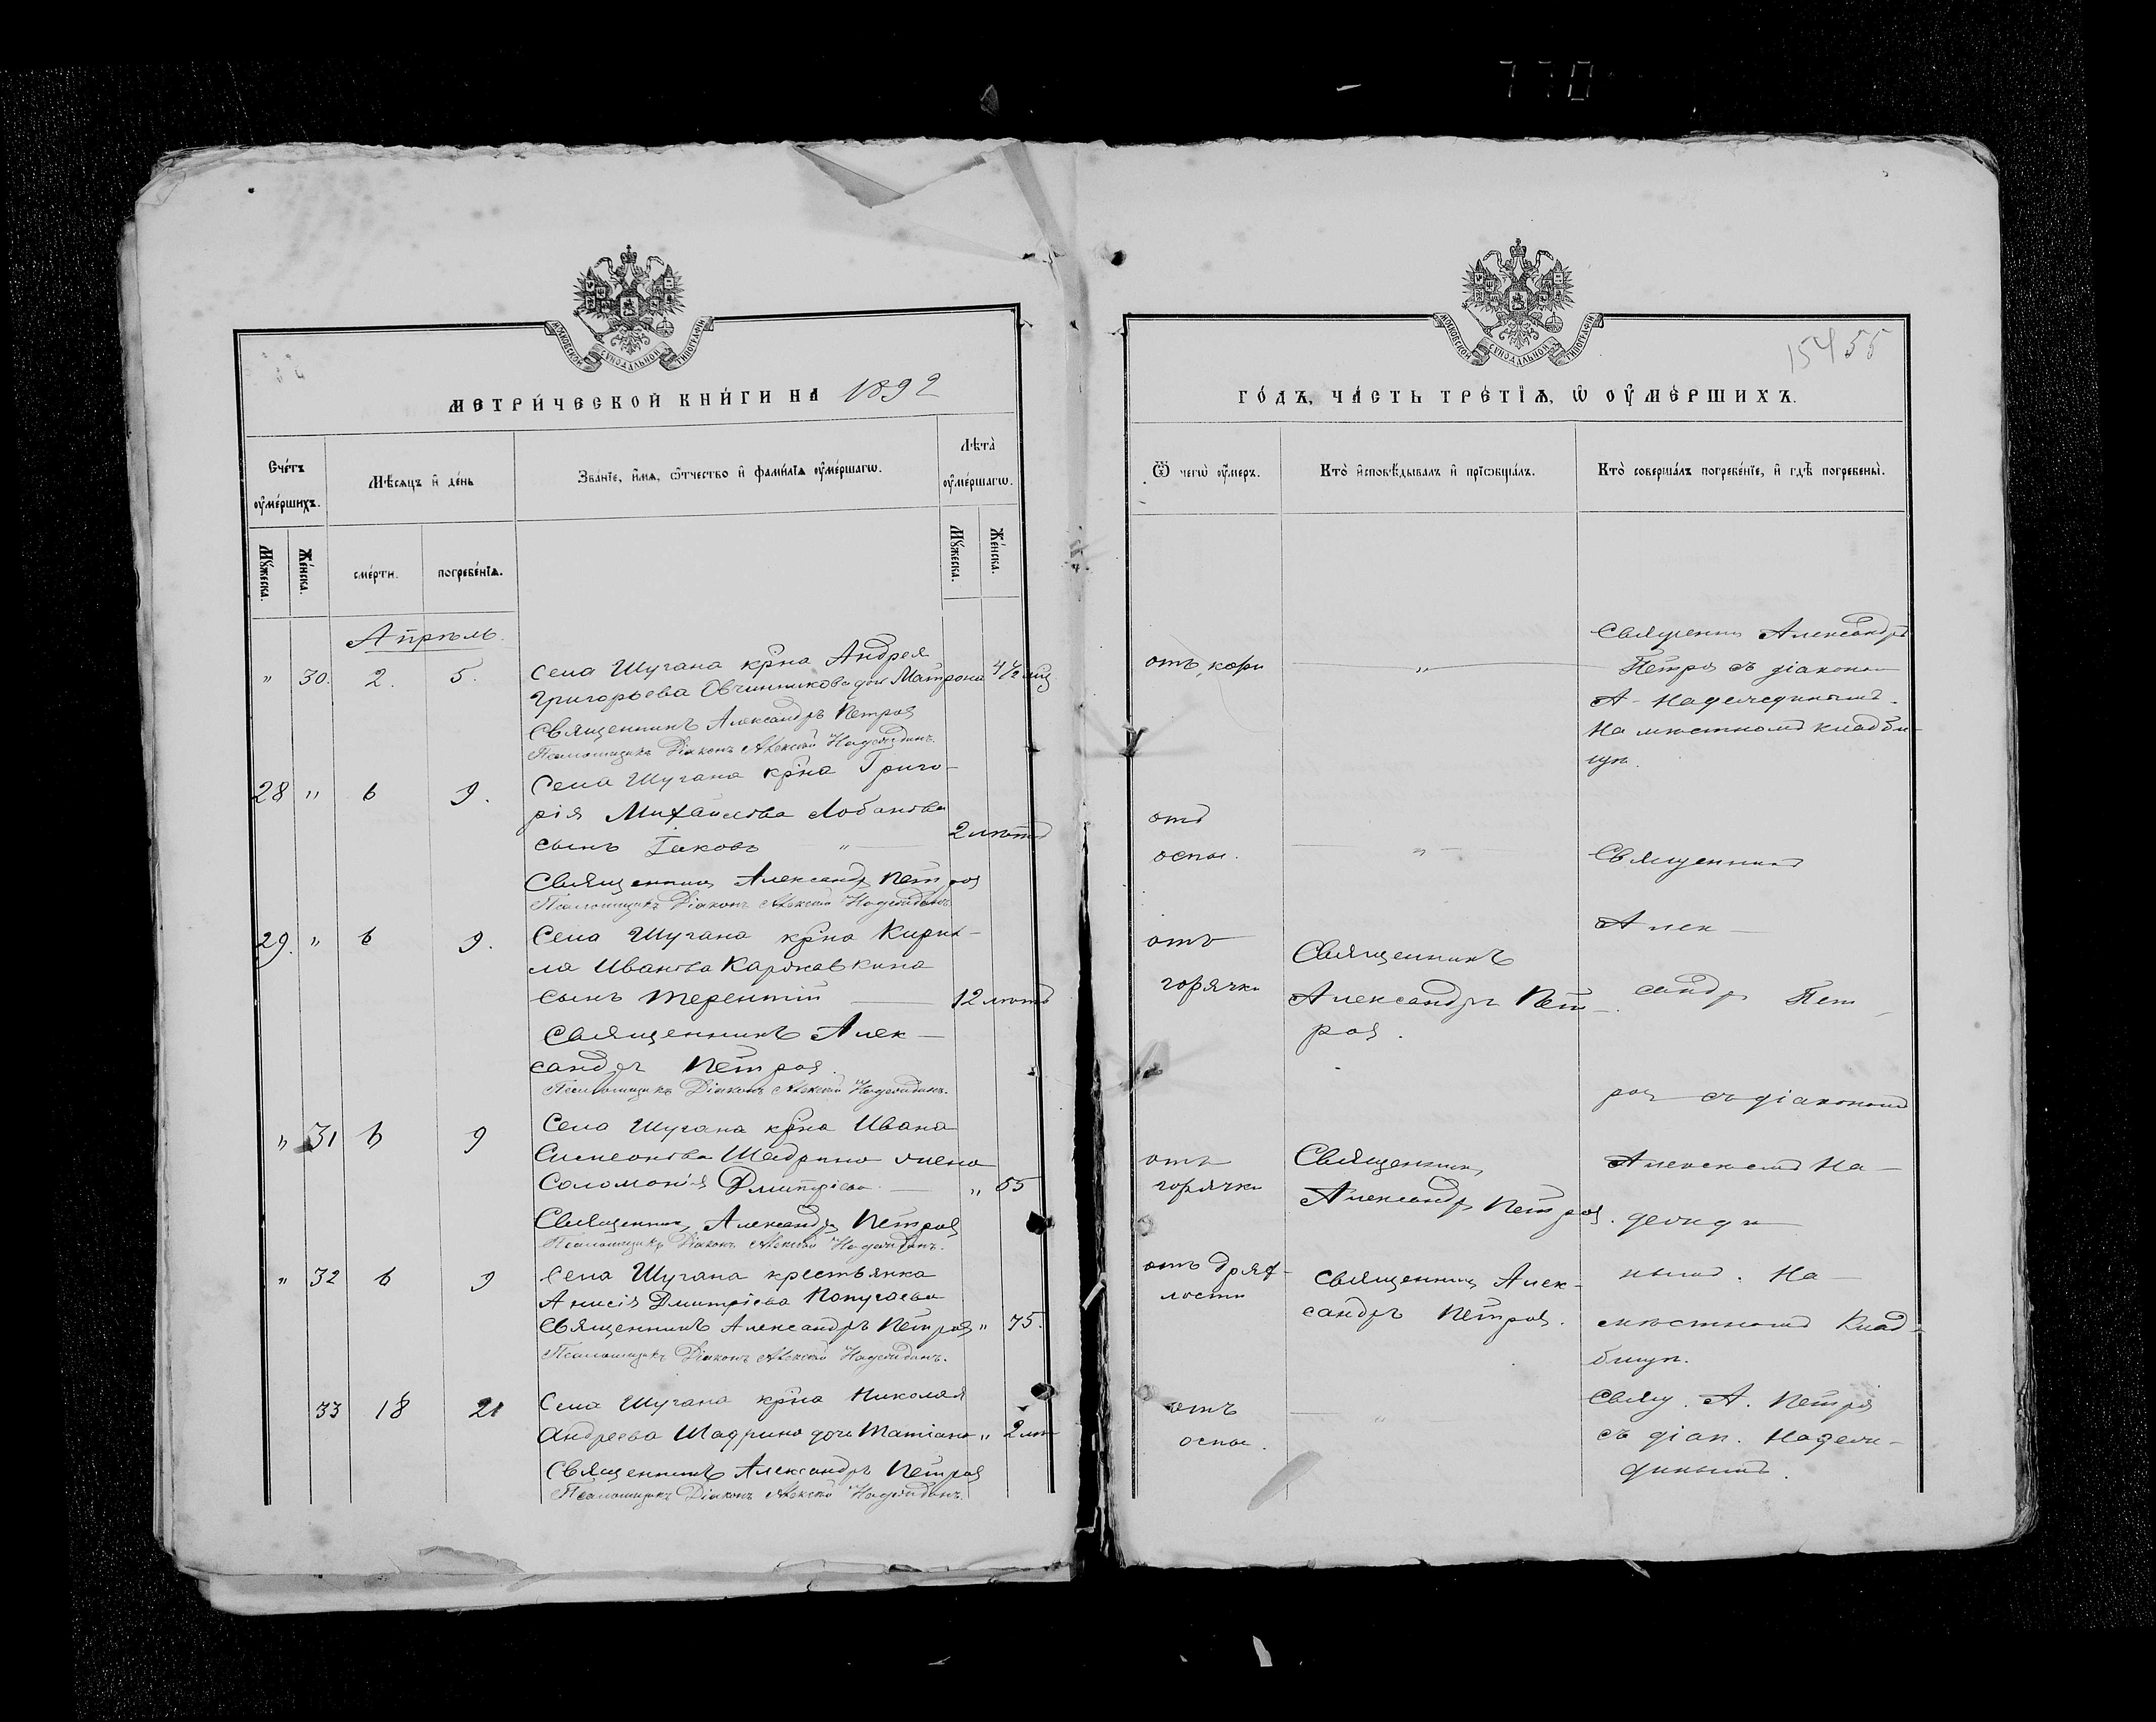 770
МОСКОВСКОЙ СѴНОДАЛЬНОЙ ТИПОГРАФІИ
МЕТРИ́ЧЕСКОЙ КНИ́ГИ НА 1892
Сче́тъ ᲂу҆ме́ршихъ.
Мѣ́сѧцъ и҆ де́нь
Зва́нїе, и҆́мѧ, ѻ҆́тчество и҆ фами́лїѧ ᲂу҆ме́ршагѡ.
Лѣ́та ᲂу҆ме́ршагѡ.
Мꙋ́жеска.
Же́нска.
сме́рти.
погребе́нїѧ.
Мꙋ́жеска.
Же́нска.
Апрѣль.
" 30. 2. 5. Села Шугана кр̃на Андрея
Григорьева Овчинникова дочь Матрона 4½ мѣс
Священникъ Александръ Петров
Псаломщикъ Діаконъ Алексій Надеждинъ.
28 " 6 9. Села Шугана кр̃на Григо-
рія Михайлова Лобанова
сынъ Іаковъ " 2 лѣтъ
Священникъ Александръ Петров
Псаломщикъ Діаконъ Алексій Надеждинъ
29. " 6 9. Села Шугана кр̃на Кирил-
ла Иванова Каржавкина
сынъ Терентій 12 лѣтъ
Священникъ Алек-
сандръ Петров.
Псаломщикъ Діаконъ Алексій Надеждинъ.
" 31 6 9 Села Шугана кр̃на Ивана
Симеонова Шадрина жена
Соломонія Дмитріева " 55
Священникъ Александръ Петров
Псаломщикъ Діаконъ Алексій Надеждинъ.
" 32 6 9 Села Шугана крестьянка
Анисія Дмитріева Попугаева
Священникъ Александръ Петров " 75.
Псаломщикъ Діаконъ Алексій Надеждинъ.
33 18 21 Села Шугана кр̃на Николая
Андреева Шадрина дочь Татіана " 2 лѣ
Священникъ Александръ Петров
Псаломщикъ Діаконъ Алексій Надеждинъ.
МОСКОВСКОЙ СѴНОДАЛЬНОЙ ТИПОГРАФІИ
154 55
ГО́ДЪ, ЧА́СТЬ ТРЕ́ТЇѦ, Ѡ҆ ОУ҆МЕ́РШИХЪ.
Ѿ чегѡ̀ ᲂу҆́меръ.
Кто̀ и҆сповѣ́дывалъ и҆ прїѡбща́лъ.
Кто̀ соверша́лъ погребе́нїе, и҆ гдѣ̀ погребены̀.
отъ кори
"
Священник Александръ
Петров съ діакономъ
А. Надеждинымъ.
На мѣстномъ кладби-
щѣ.
отъ
оспы.
"
Священникъ
отъ
горячки
Священникъ
Александръ Пет-
ров.
Алек-
сандръ Пет
ров съ діакономъ
отъ
горячки
Священникъ
Александръ Петров.
Алексеемъ На-
деждинымъ. На
отъ дрях-
лости
Священникъ Алек-
сандръ Петров.
мѣстномъ Клад-
бищѣ.
отъ
оспы.
"
Свящ. А. Петров
съ діак. Надеж-
динымъ.